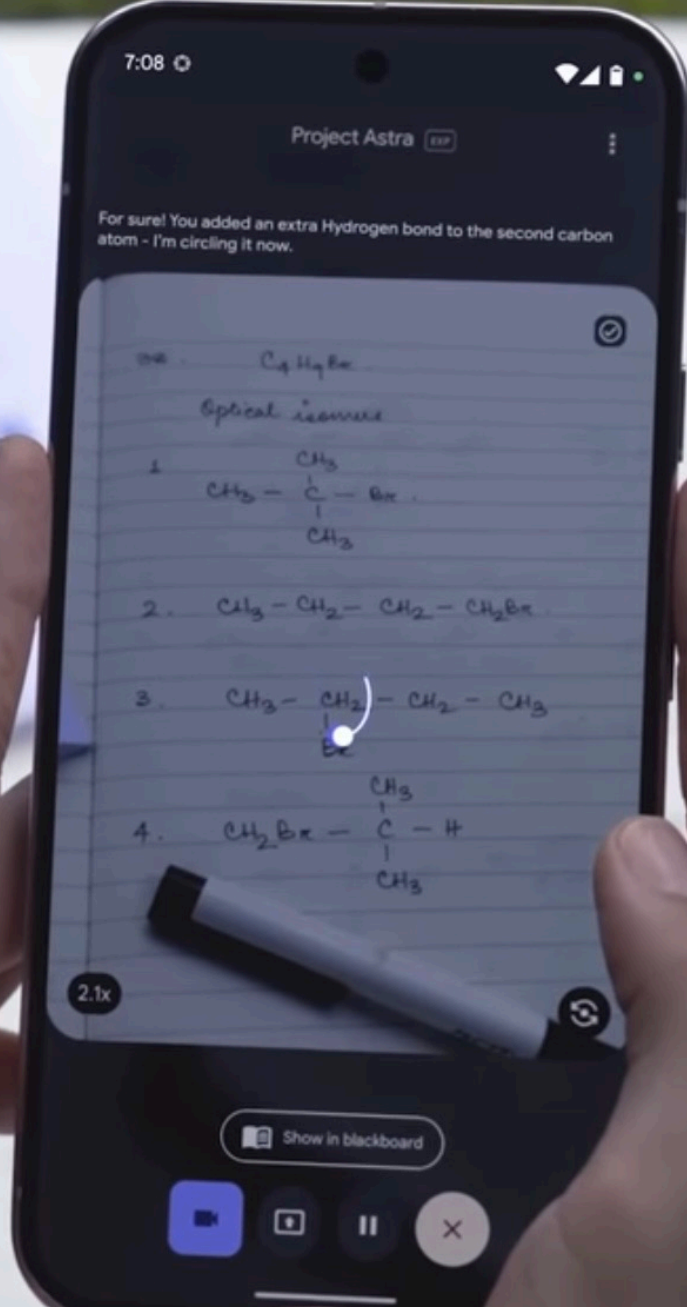 7:08
Project Astra EXP
For sure! You added an extra Hydrogen bond to the second carbon
atom - I'm circling it now.
C4H9Br
Optical isomers
1
CH3
CH3 - C - Br.
CH3
2. CH3 - CH2 - CH2 - CH2Br
3. CH3 - CH2 - CH2 - CH3
Br
CH3
4. CH2Br - C - H
CH3
2.1x
Show in blackboard